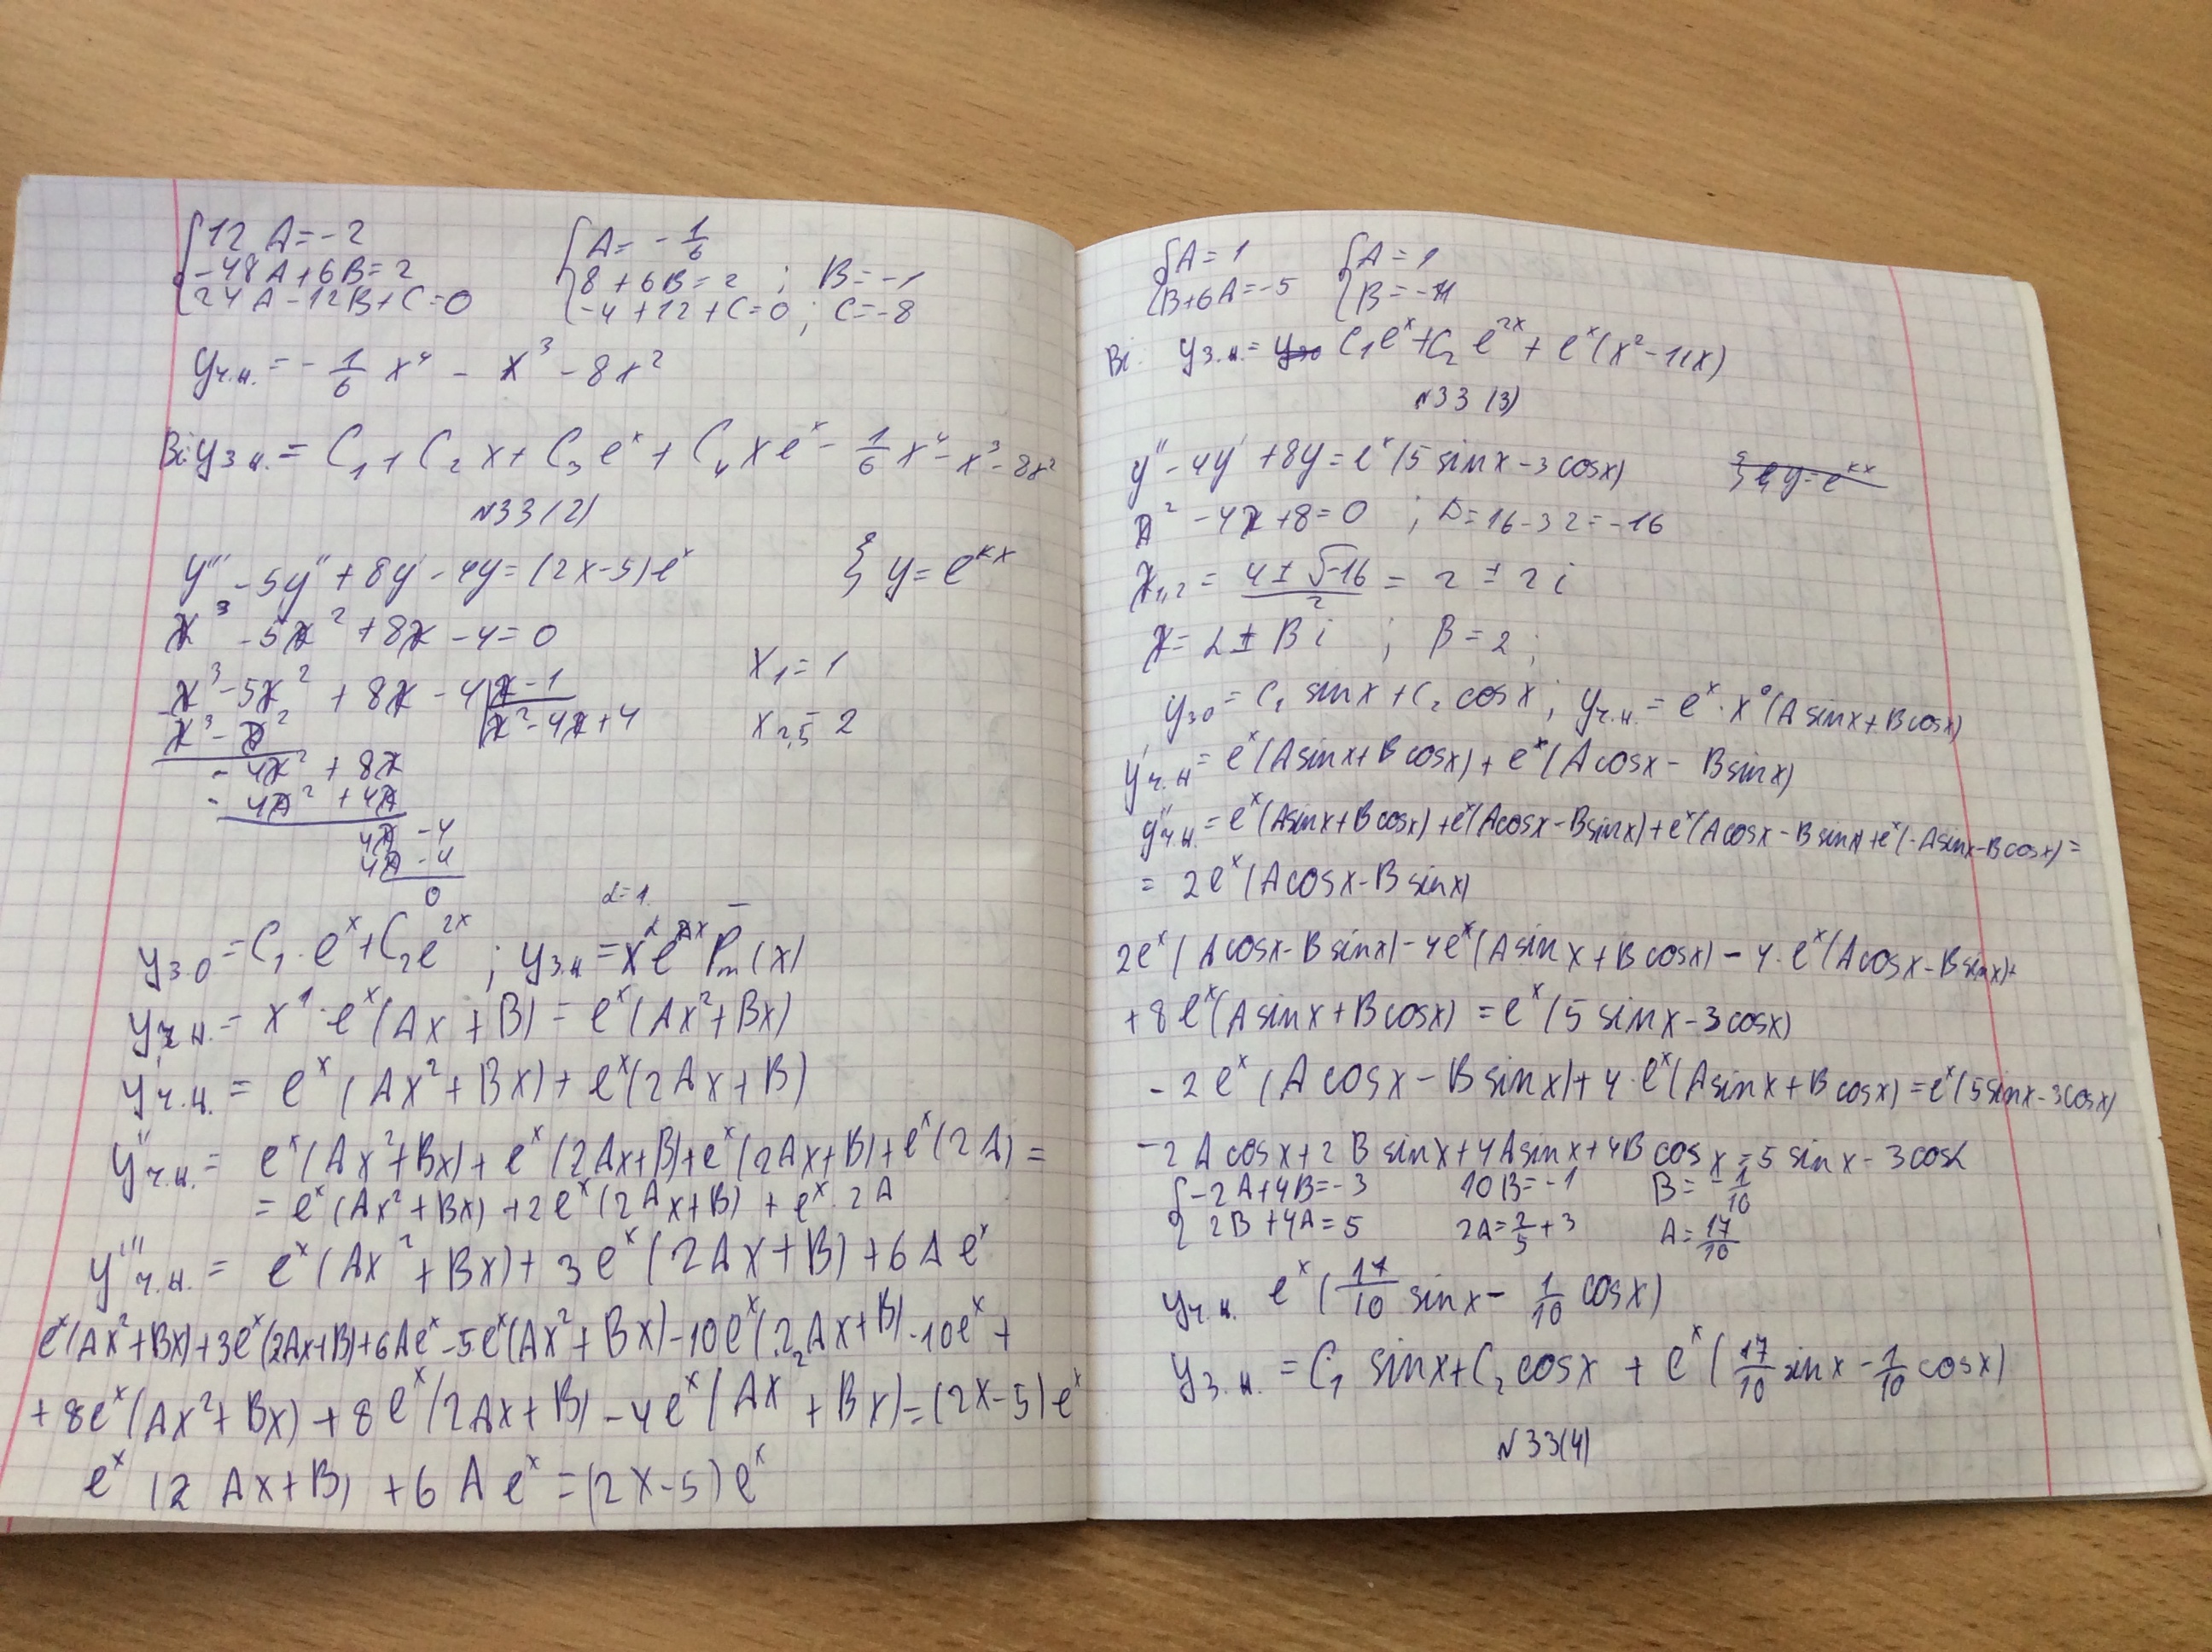 {12A=-2 {A=-1/6
-48A+6B=2 8+6B=2 ; B=-1
24A-12B+C=0 -4+12+C=0; C=-8
yч.н.=-1/6 x⁴ - x³ - 8x²
Ві yз.н.= C₁+C₂x+C₃eˣ+C₄xeˣ-1/6 x⁴-x³-8x²
N33(2)
y'''-5y''+8y'-4y=(2x-5)eˣ } y=e^(kx)
λ³-5λ²+8λ-4=0
λ³-5λ²+8λ-4 | λ-1 x₁=1
λ³-λ² | λ²-4λ+4 x₂,₃=2
-4λ²+8λ
-4λ²+4λ
4λ-4
4λ-4
0
α=1
yз.о=C₁·eˣ+C₂e²ˣ ; yз.н=x^α e^(λx) Pm(x)
yч.н.=x¹·eˣ(Ax+B)=eˣ(Ax²+Bx)
y'ч.н.=eˣ(Ax²+Bx)+eˣ(2Ax+B)
y''ч.н.=eˣ(Ax²+Bx)+eˣ(2Ax+B)+eˣ(2Ax+B)+eˣ(2A)=
=eˣ(Ax²+Bx)+2eˣ(2Ax+B)+eˣ·2A
y'''ч.н.=eˣ(Ax²+Bx)+3eˣ(2Ax+B)+6Aeˣ
eˣ(Ax²+Bx)+3eˣ(2Ax+B)+6Aeˣ-5eˣ(Ax²+Bx)-10eˣ(2Ax+B)-10eˣ+
+8eˣ(Ax²+Bx)+8eˣ(2Ax+B)-4eˣ(Ax²+Bx)=(2x-5)eˣ
eˣ(2Ax+B)+6Aeˣ=(2x-5)eˣ
{A=1 {A=1
B+6A=-5 B=-11
Ві. yз.н.= C₁eˣ+C₂e²ˣ+eˣ(x²-11x)
N33(3)
y''-4y'+8y=eˣ(5sinx-3cosx) y=e^(kx)
λ²-4λ+8=0 ; D=16-32=-16
λ₁,₂=(4±√-16)/2=2±2i
λ=α±Bi ; B=2;
yз.о=C₁sinx+C₂cosx; yч.н.=eˣ·x⁰(Asinx+Bcosx)
y'ч.н=eˣ(Asinx+Bcosx)+eˣ(Acosx-Bsinx)
y''ч.н.=eˣ(Asinx+Bcosx)+eˣ(Acosx-Bsinx)+eˣ(Acosx-Bsinx)+eˣ(-Asinx-Bcosx)=
=2eˣ(Acosx-Bsinx)
2eˣ(Acosx-Bsinx)-4eˣ(Asinx+Bcosx)-4·eˣ(Acosx-Bsinx)+
+8eˣ(Asinx+Bcosx)=eˣ(5sinx-3cosx)
-2eˣ(Acosx-Bsinx)+4·eˣ(Asinx+Bcosx)=eˣ(5sinx-3cosx)
-2Acosx+2Bsinx+4Asinx+4Bcosx=5sinx-3cosx
{-2A+4B=-3 10B=-1 B=-1/10
2B+4A=5 2A=2/5+3 A=17/10
yч.н. eˣ(17/10 sinx-1/10 cosx)
yз.н.=C₁sinx+C₂cosx+eˣ(17/10 sinx-1/10 cosx)
N33(4)